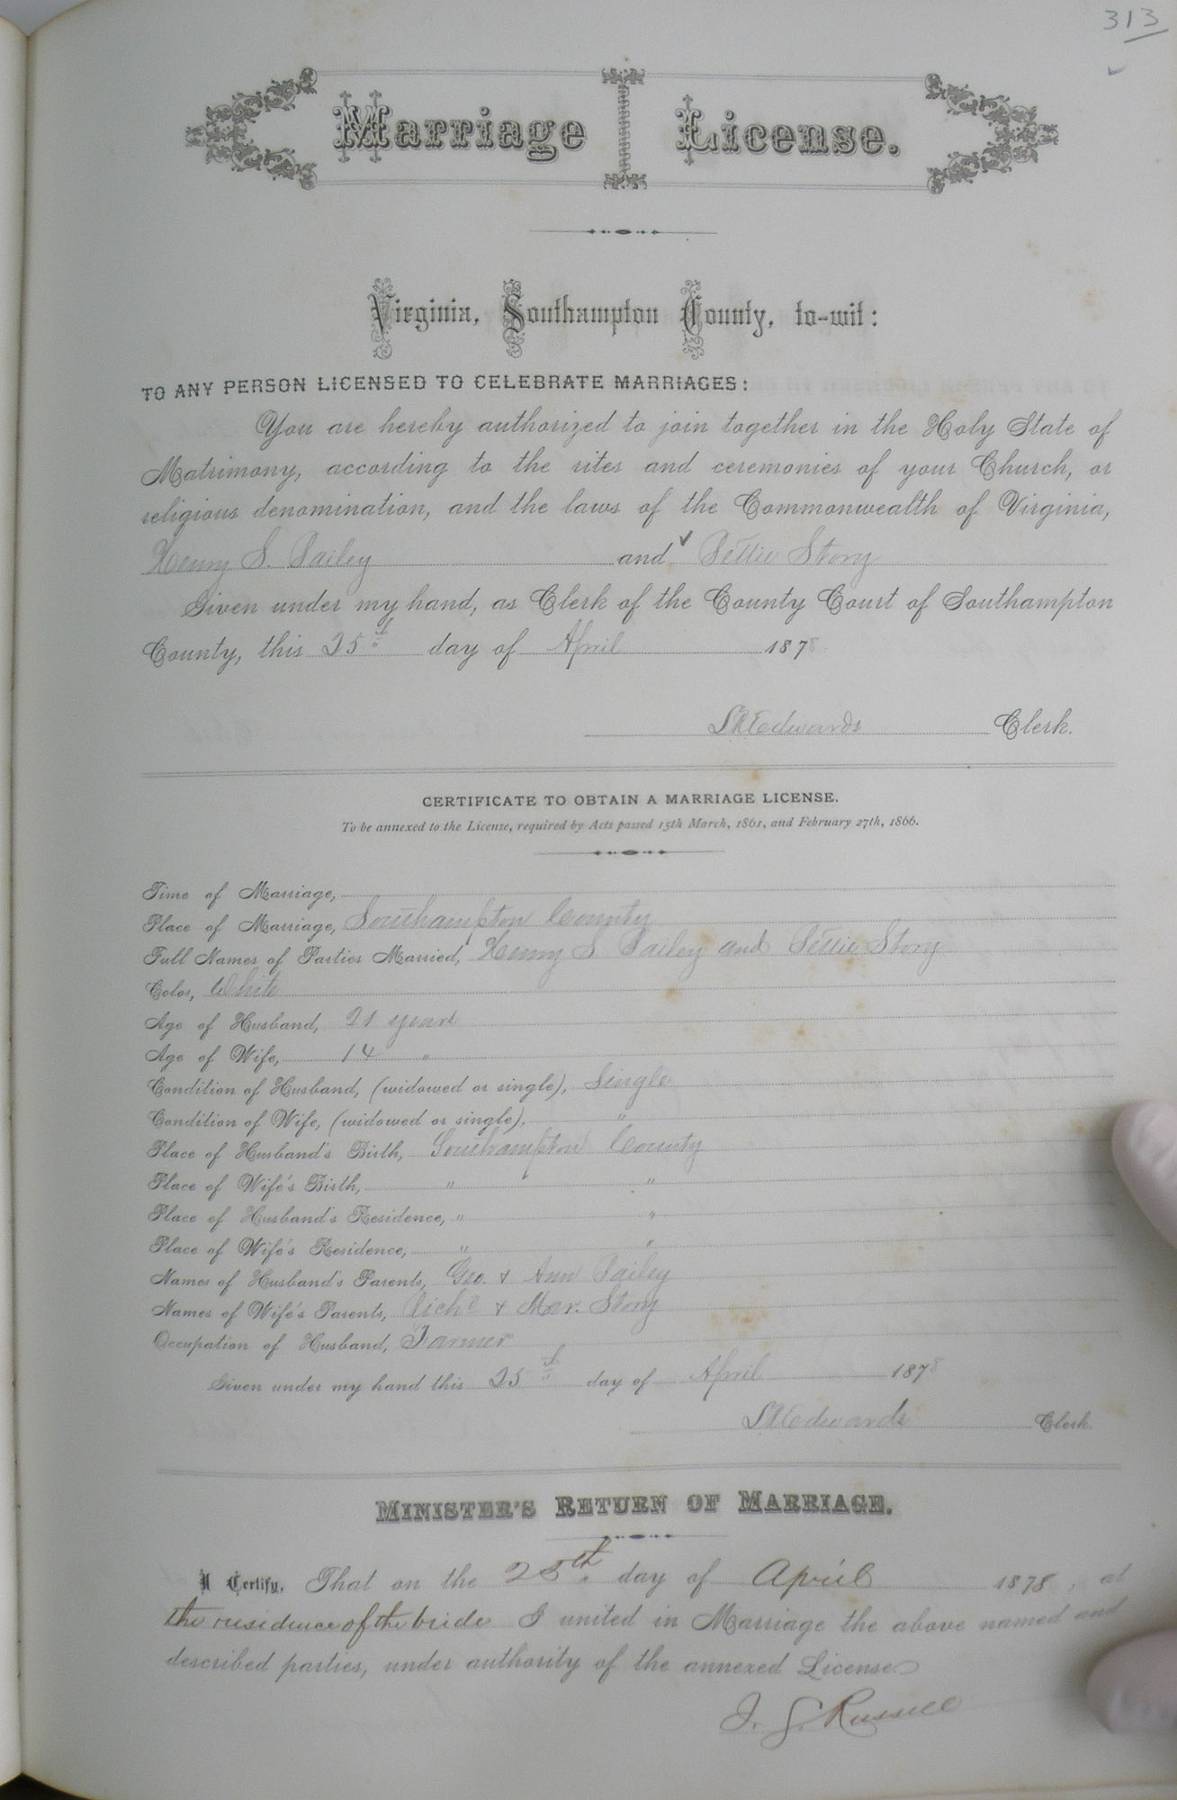 313
Marriage License.
Virginia, Southampton County, to-wit:
TO ANY PERSON LICENSED TO CELEBRATE MARRIAGES:
You are hereby authorized to join together in the Holy State of
Matrimony, according to the rites and ceremonies of your Church, or
religious denomination, and the laws of the Commonwealth of Virginia,
Henry S. and Story
Given under my hand, as Clerk of the County Court of Southampton
County, this 25th day of April 1878
Edwards Clerk.
CERTIFICATE TO OBTAIN A MARRIAGE LICENSE.
To be annexed to the License, required by Acts passed 15th March, 1861, and February 27th, 1866.
Time of Marriage,
Place of Marriage, Southampton County
Full Names of Parties Married, Henry S. and Story
Color, White
Age of Husband, 21 years
Age of Wife, 14 "
Condition of Husband, (widowed or single), Single
Condition of Wife, (widowed or single), "
Place of Husband's Birth, Southampton County
Place of Wife's Birth, " "
Place of Husband's Residence, " "
Place of Wife's Residence, " "
Names of Husband's Parents, Geo. & Ann
Names of Wife's Parents, & Mar. Story
Occupation of Husband, Farmer
Given under my hand this 25th day of April 1878
Edwards Clerk.
MINISTER'S RETURN OF MARRIAGE.
I Certify, That on the 25th. day of April 1878, at
the residence of the bride I united in Marriage the above named and
described parties, under authority of the annexed License
J. G. Russell